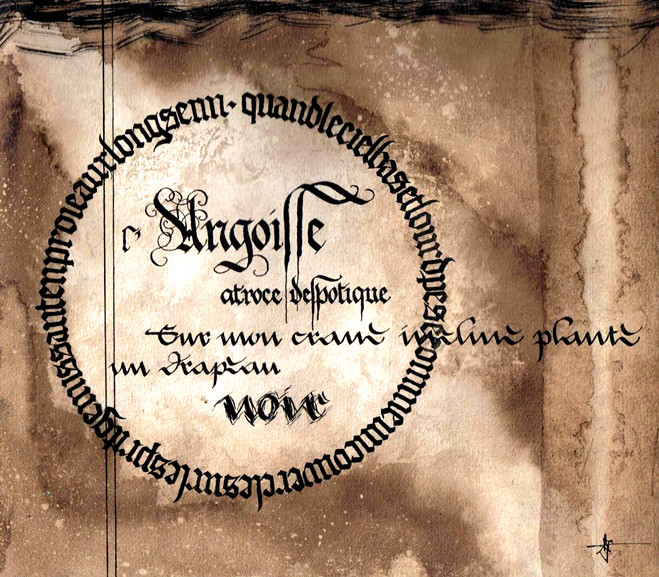 quandlecielbasetlourdpesecommeuncouverclesurlespritgemissantenproieauxlongsenn
l'Angoisse
atroce despotique
Sur mon crane incline plante
un drapeau
noir